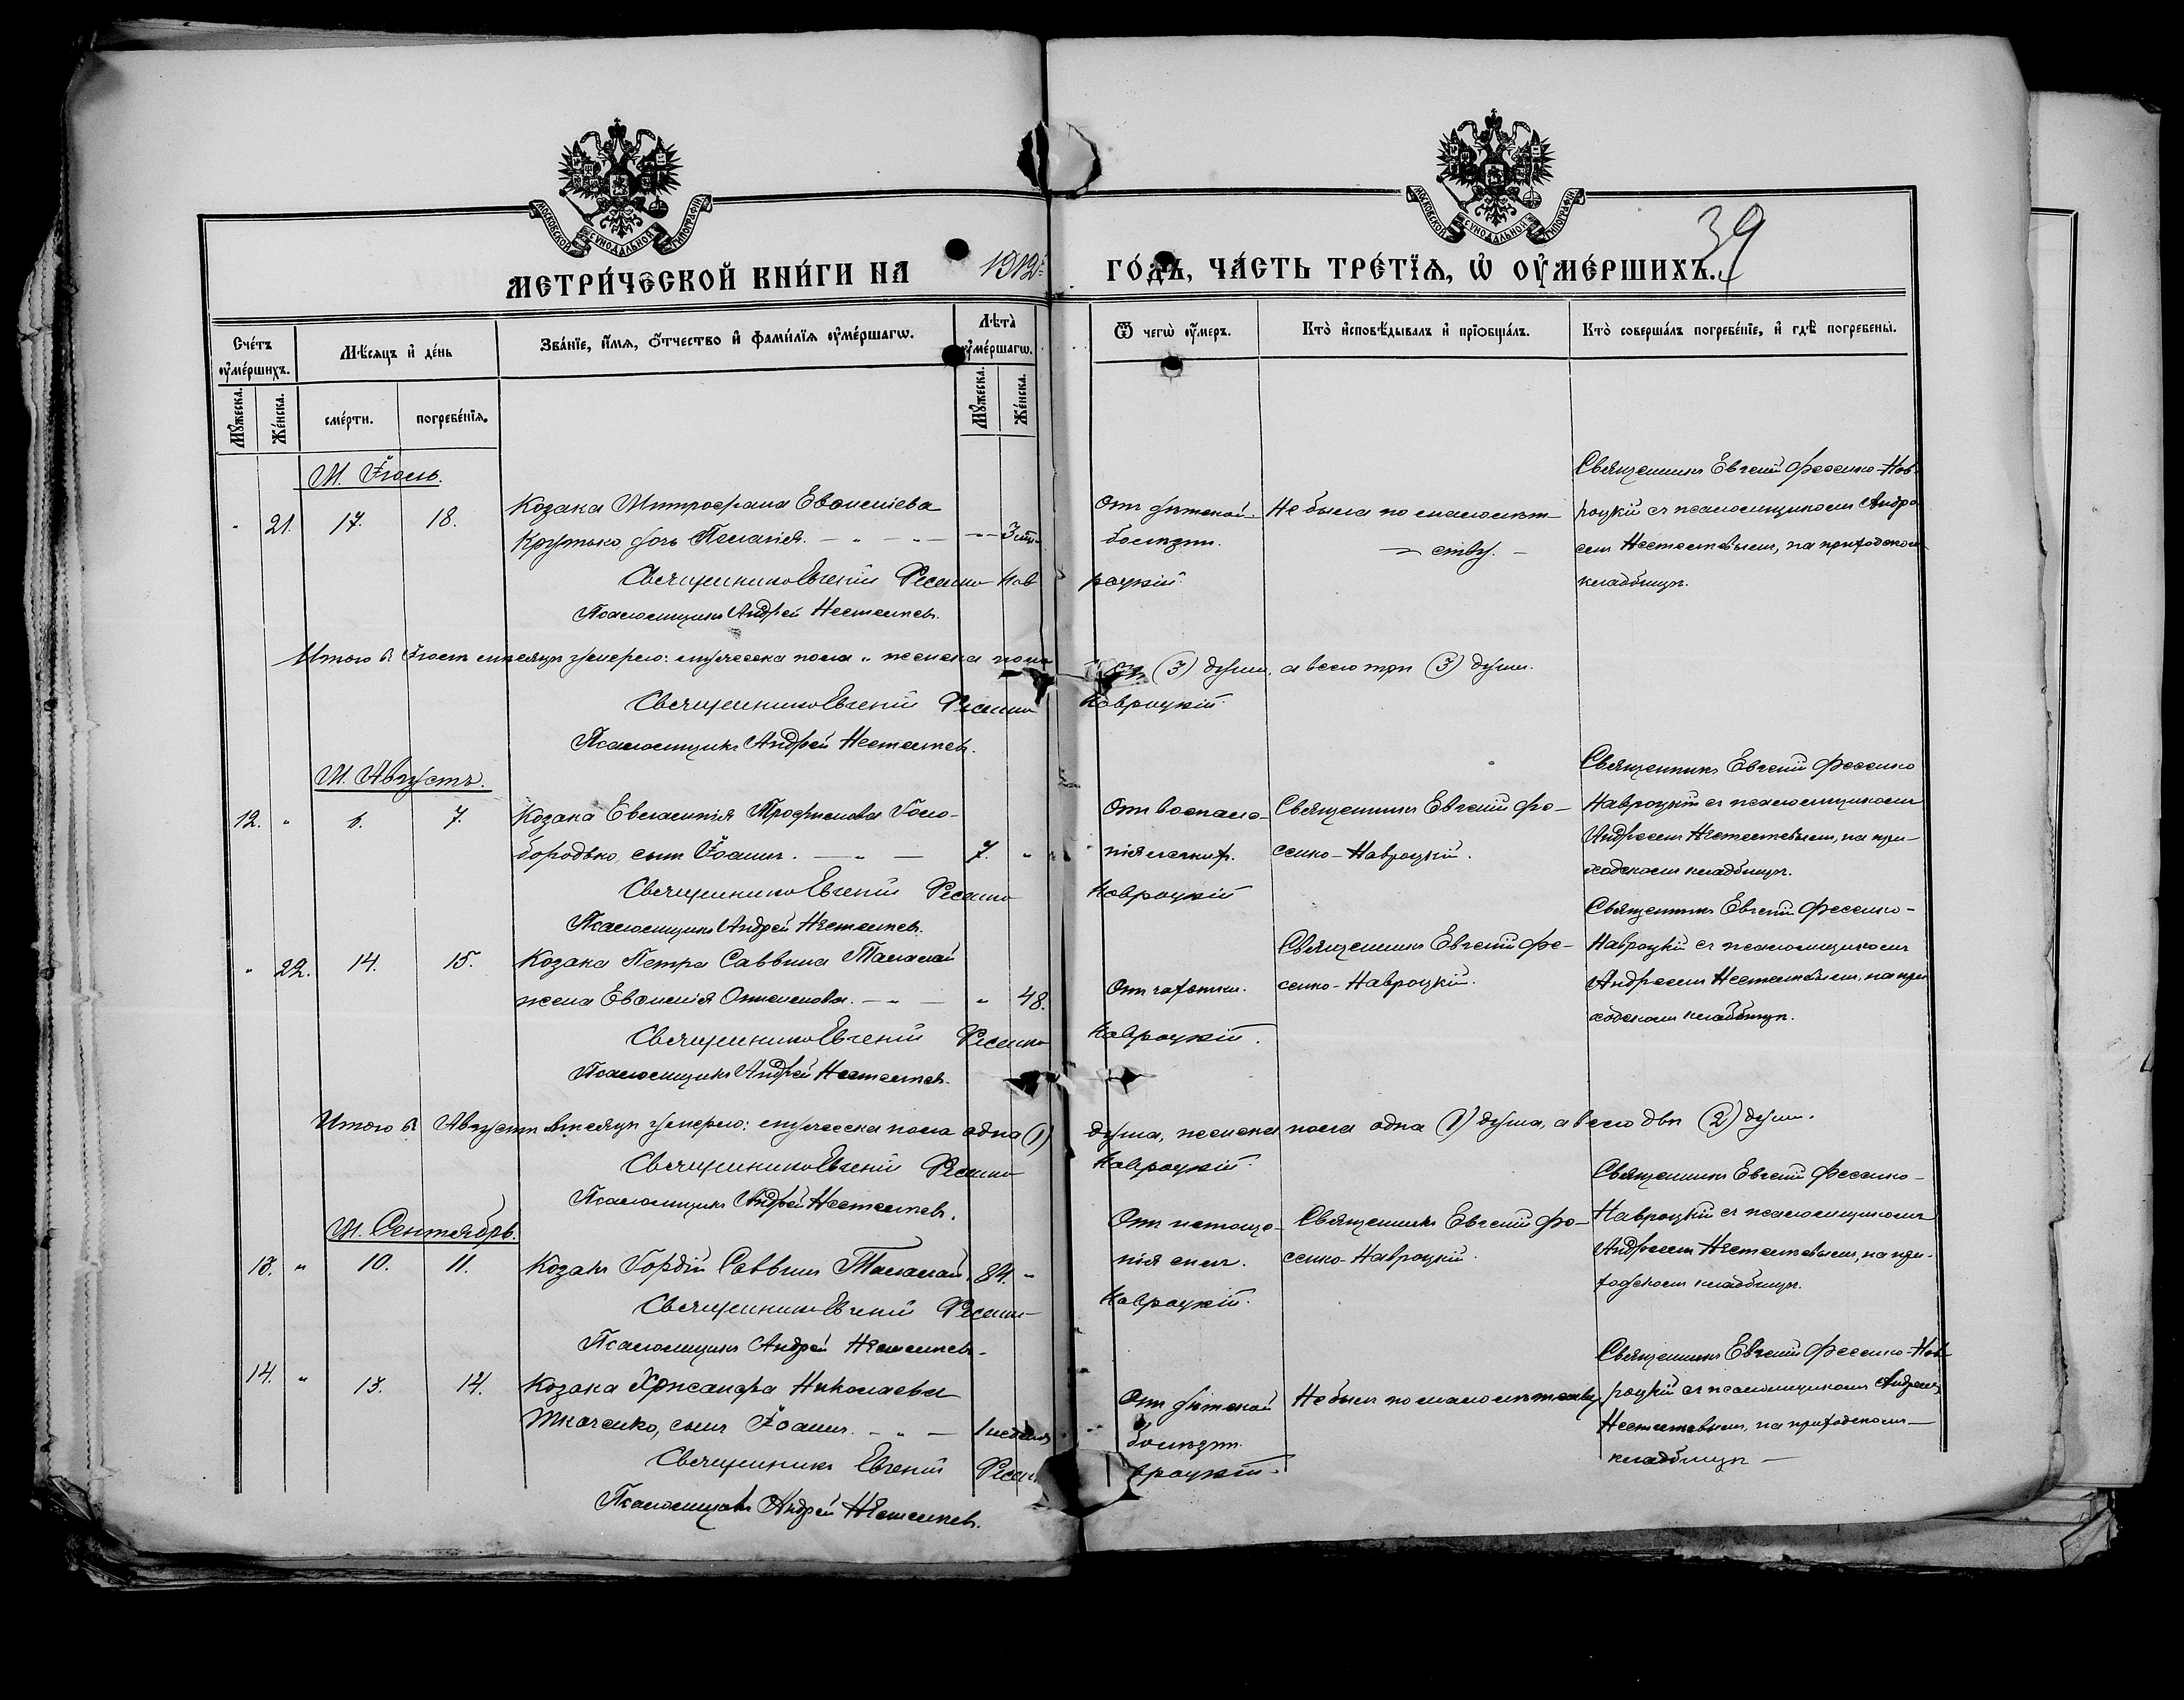 МОСКОВСКОЙ СУНОДАЛЬНОЙ ТИПОГРАФІИ
МОСКОВСКОЙ СУНОДАЛЬНОЙ ТИПОГРАФІИ
39
МЕТРИ́ЧЕСКОЙ КНИ́ГИ НА 1912 ГО́ДЪ, ЧА́СТЬ ТРЕ́ТЇѦ, Ѡ҆ ОУ҆МЕ́РШИХЪ.
Сче́тъ оу҆ме́ршихъ.
Мѣ́сѧцъ и҆ де́нь
Зва́нїе, и҆́мѧ, ѻ҆́тчество и҆ фами́лїѧ оу҆ме́ршагѡ.
Лѣта̀ оу҆ме́ршагѡ.
Ѿ чегѡ̀ оу҆́меръ.
Кто̀ и҆сповѣ́дывалъ и҆ прїѡбща́лъ.
Кто̀ соверша́лъ погребе́нїе, и҆ гдѣ̀ погребены̀.
Мꙋ́жеска.
Же́нска.
сме́рти.
погребе́нїѧ.
Мꙋ́жеска.
Же́нска.
М. Іюль.
" 21. 17. 18.
Козака Митрофана Евѳиміева
Крутько дочь Пелагія. — " — " — 3
Отъ дѣтской
болѣзни.
Не была по малолѣт-
ству.
Священникъ Евгеній Фесенко-Нав-
роцкій съ псаломщикомъ Андре
емъ Нестелѣевымъ, на приходском
кладбищѣ.
Священникъ Евгеній Фесенко Нав
роцкій
Псаломщикъ Андрей
Итого въ Іюлѣ мѣсяцѣ умерло: мужеска пола " женска пола три (3) души, а всего три (3) души.
Священникъ Евгеній Фесенко Навроцкій
Псаломщикъ Андрей
М. Августъ.
12. " 6. 7.
Козака Евлампія Трофимова Голо-
бородько, сынъ Іоаннъ. — " — 7. "
Отъ воспале-
нія легкихъ.
Священникъ Евгеній Фе-
сенко-Навроцкій.
Священникъ Евгеній Фесенко
Навроцкій съ псаломщикомъ
Андреемъ на при-
ходскомъ кладбищѣ.
Священникъ Евгеній Фесенко Навроцкій
Псаломщикъ Андрей
" 22. 14. 15.
Козака Петра Саввина Таламай
жена Евѳимія — " — " 48.
Отъ чахотки.
Священникъ Евгеній Фе-
сенко-Навроцкій.
Священникъ Евгеній Фесенко-
Навроцкій съ псаломщикомъ
Андреемъ на при
ходскомъ кладбищѣ.
Священникъ Евгеній Фесенко Навроцкій.
Псаломщикъ Андрей
Итого въ Августѣ мѣсяцѣ умерло: мужеска пола одна (1) душа, женска пола одна (1) душа, а всего двѣ (2) души.
Священникъ Евгеній Фесенко Навроцкій.
Псаломщикъ Андрей
М. Сентябрь.
13. " 10. 11.
Козакъ Гордій Саввинъ Таламай. 84. "
Отъ истоще-
нія силъ.
Священникъ Евгеній Фе-
сенко-Навроцкій.
Священникъ Евгеній Фесенко-
Навроцкій съ псаломщикомъ
Андреемъ на при-
ходскомъ кладбищѣ.
Священникъ Евгеній Фесенко Навроцкій.
Псаломщикъ Андрей
14. " 13. 14.
Козака Хрисанфа Николаева
Ткаченко, сынъ Іоаннъ. — " — 1 недѣля
Отъ дѣтской
болѣзни.
Не былъ по малолѣтству
Священникъ Евгеній Фесенко-Нав
роцкій съ псаломщикомъ Андреемъ
на приходскомъ
кладбищѣ
Священникъ Евгеній
вроцкій.
Псаломщикъ Андрей